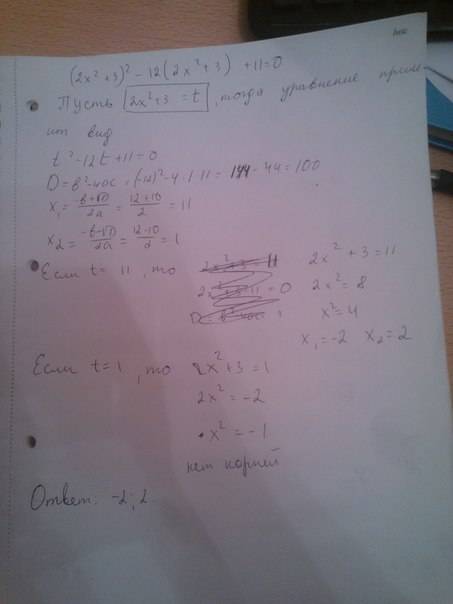 (2x²+3)² - 12(2x²+3) + 11 = 0
Пусть 2x²+3 = t, тогда уравнение приме
ит вид
t² - 12t + 11 = 0
D = в² - 4ac = (-12)² - 4·1·11 = 144 - 44 = 100
x₁ = -в+√D/2a = 12+10/2 = 11
x₂ = -в-√D/2a = 12-10/2 = 1
Если t = 11, то 2x² + 3 = 11
2x² = 8
x² = 4
x₁ = -2 x₂ = 2
Если t = 1, то 2x² + 3 = 1
2x² = -2
x² = -1
нет корней
Ответ. -2; 2